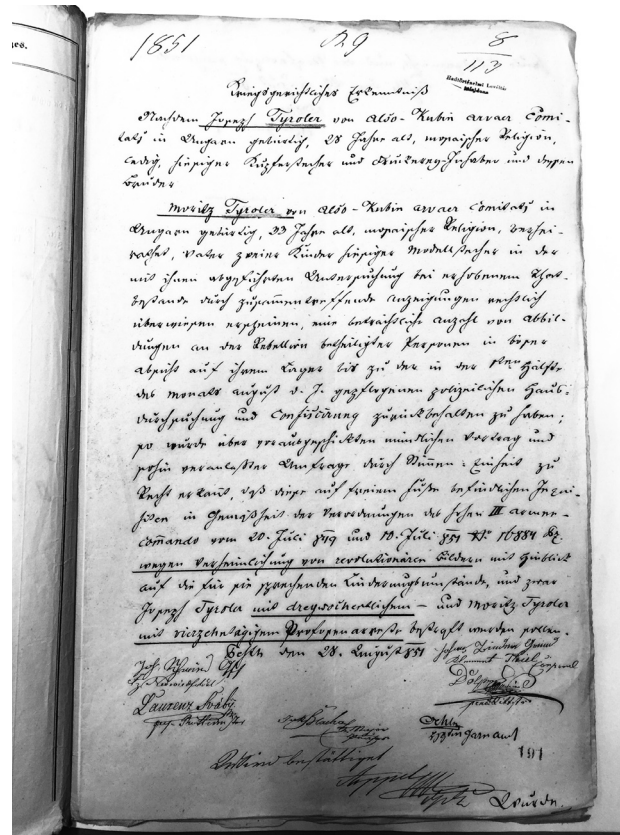 ges.
1851 29 8/113
Hadtörténelmi Levéltár
Kriegsgerichtliches Erkenntniß
Nachdem Joseph Tyroler von Alsó-Kubin Arvaer Comi-
tats in Ungarn gebürtig, 28 Jahre alt, mosaischer Religion,
ledig, hiesiger Kupferstecher und Druckerey-Inhaber und dessen
Bruder
Moritz Tyroler von Alsó-Kubin Arvaer Comitats in
Ungarn gebürtig, 33 Jahre alt, mosaischer Religion, verhei-
rathet, Vater zweier Kinder hiesiger Modellstecher in der
mit ihnen abgeführten Untersuchung bei erhobenem That-
bestande durch zusammentreffende Anzeigungen rechtlich
überwiesen erscheinen, eine beträchtliche Anzahl von Abbil-
dungen an der Rebellion betheiligter Personen in böser
Absicht auf ihrem Lager bis zu der in der 1ten Hälfte
des Monats August d. J. gepflogenen polizeilichen Haus-
durchsuchung und Confiscirung zurückbehalten zu haben;
so wurde über vorausgeschickten mündlichen Vortrag und
sohin veranlaßter Umfrage durch Stimmen-Einheit zu
Recht erkannt, daß diese auf freiem Fuße befindlichen Inqui-
siten in Gemäßheit der Verordnungen des hohen III Armee-
Commando vom 20. Juli 849 und 10. Juli 851 Nr. 16884
wegen Verheimlichung von revolutionären Bildern mit Hinblick
auf die für sie sprechenden Linderungsumstände, und zwar
Joseph Tyroler mit dreywöchentlichem - und Moritz Tyroler
mit vierzehntägigem Profosenarreste bestraft werden sollen.
Pesth den 28. August 851
Joh. Gfr
Laurenz Sváby
Garn Aud
191
Wird bestättiget
Appel
Wurde